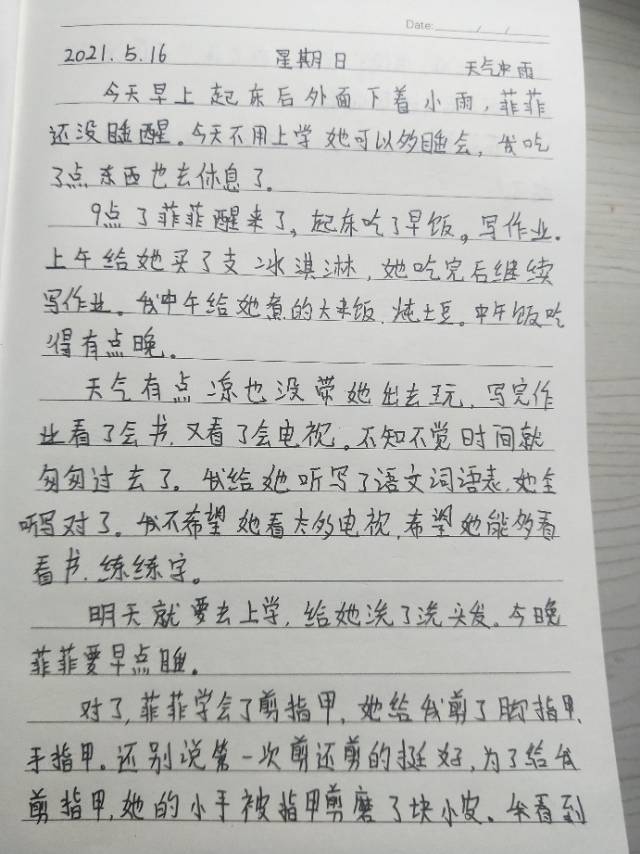 Date: / /
2021.5.16 星期日 天气中雨
今天早上起床后外面下着小雨，菲菲
还没睡醒。今天不用上学她可以多睡会，我吃
了点东西也去休息了。
9点了菲菲醒来了，起床吃了早饭。写作业.
上午给她买了支冰淇淋，她吃完后继续
写作业。我中午给她煮的大米饭.炖土豆。中午饭吃
得有点晚。
天气有点凉也没带她出去玩，写完作
业看了会书.又看了会电视。不知不觉时间就
匆匆过去了。我给她听写了语文词语表.她全
听写对了。我不希望她看太多电视,希望她能够看
看书.练练字。
明天就要去上学，给她洗了洗头发。今晚
菲菲要早点睡。
对了,菲菲学会了剪指甲，她给我剪了脚指甲、
手指甲。还别说第一次剪还剪的挺好,为了给我
剪指甲,她的小手被指甲剪磨了块小皮。我看到